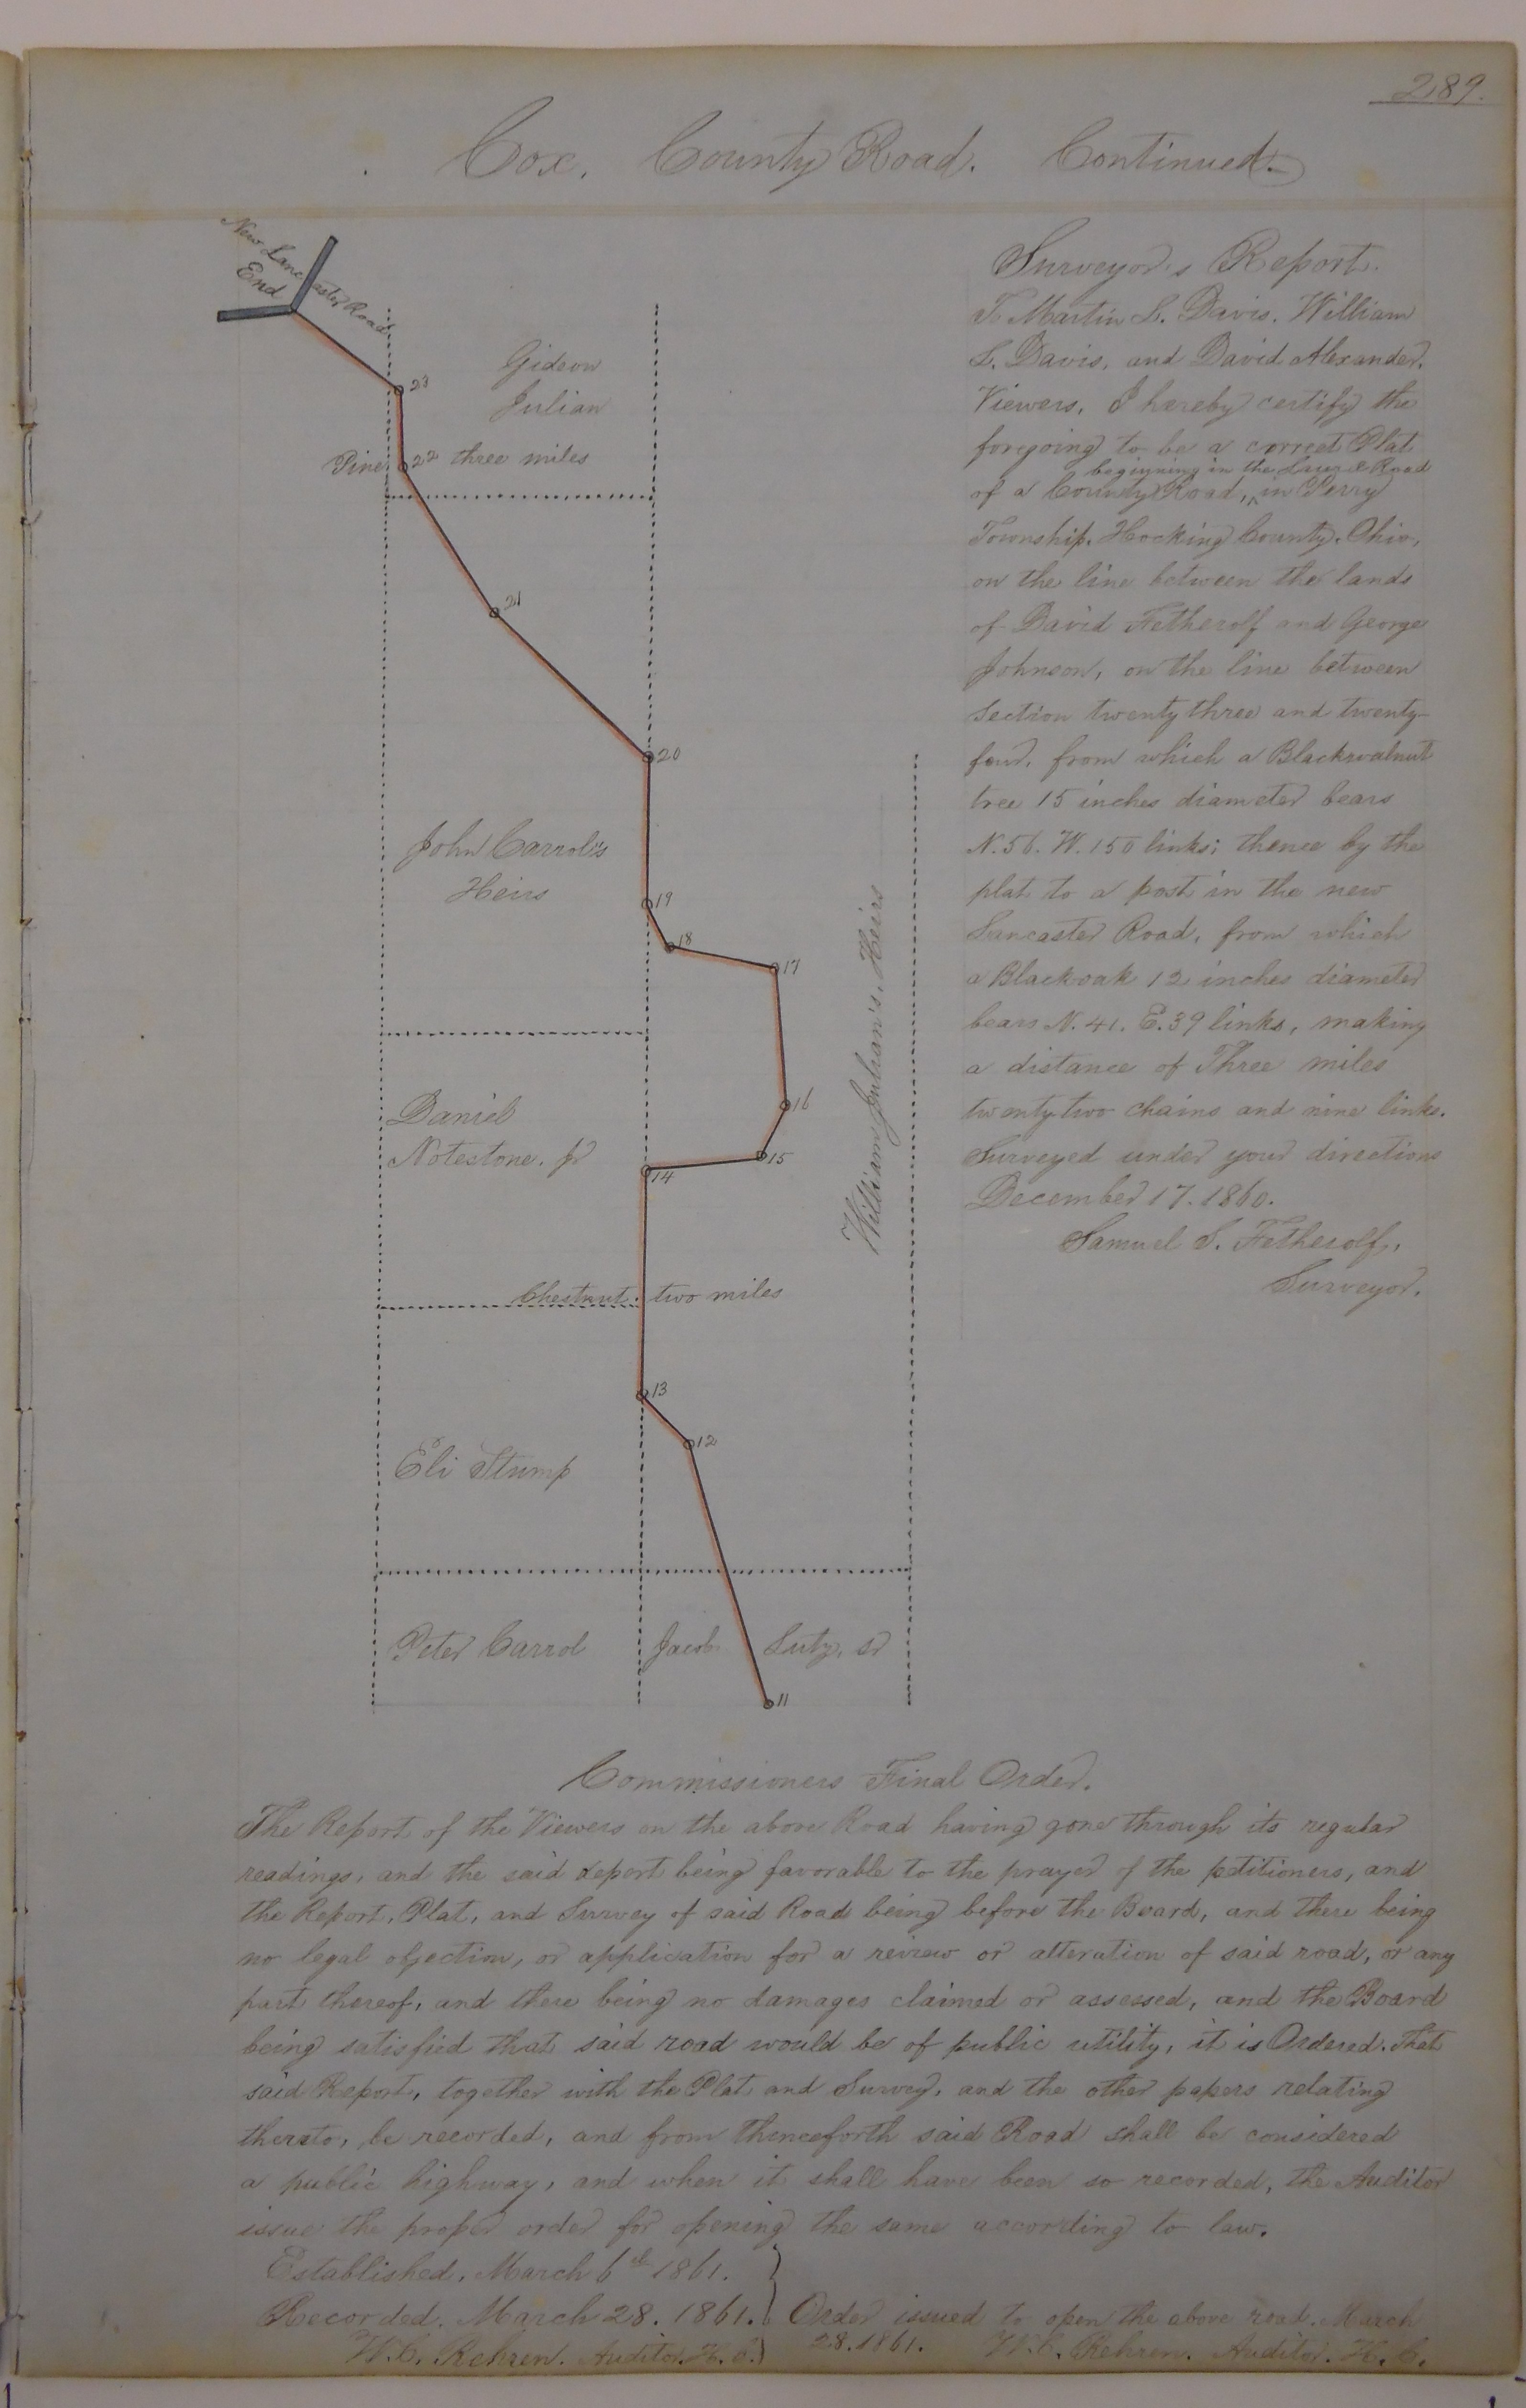 289.
Cox. County Road. Continued.
New Lancaster Road
End
23
Gideon
Julian
Pine 22 three miles
21
20
John Carrol's
Heirs
19
18
17
William Julian's Heirs
16
Daniel
Notestone. Jr
15
14
Chestnut. two miles
13
12
Eli Stump
Peter Carrol Jacob Luty, Sr
11
Surveyor's Report.
To Martin L. Davis. William
L. Davis, and David Alexander.
Viewers, I hereby certify the
foregoing to be a correct Plat
beginning in the Road
of a County Road, ^ in Perry
Township, Hocking County, Ohio,
on the line between the lands
of David Fetherolf and George
Johnson, on the line between
Section twenty three and twenty-
four, from which a Blackwalnut
tree 15 inches diameter bears
N. 56. W. 150 links; thence by the
plat to a post in the new
Lancaster Road, from which
a Blackoak 12 inches diameter
bears N. 41. E. 39 links, making
a distance of Three miles
twenty two chains and nine links.
Surveyed under your directions
December 17. 1860.
Samuel S. Fetherolf,
Surveyor.
Commissioners Final Order.
The Report of the Viewers on the above Road having gone through its regular
readings, and the said report being favorable to the prayer of the petitioners, and
the Report, Plat, and Survey of said Road being before the Board, and there being
no legal objection, or application for a review or alteration of said road, or any
part thereof, and there being no damages claimed or assessed, and the Board
being satisfied that said road would be of public utility, it is Ordered. That
said Report, together with the Plat and Survey, and the other papers relating
thereto, be recorded, and from thenceforth said Road shall be considered
a public highway, and when it shall have been so recorded, the Auditor
issue the proper order for opening the same according to law.
Established, March 6th 1861.
Recorded. March 28. 1861. Order issued to open the above road. March
W.C. Rehren. Auditor. H. C. 28. 1861. W.C. Rehren. Auditor. H. C.